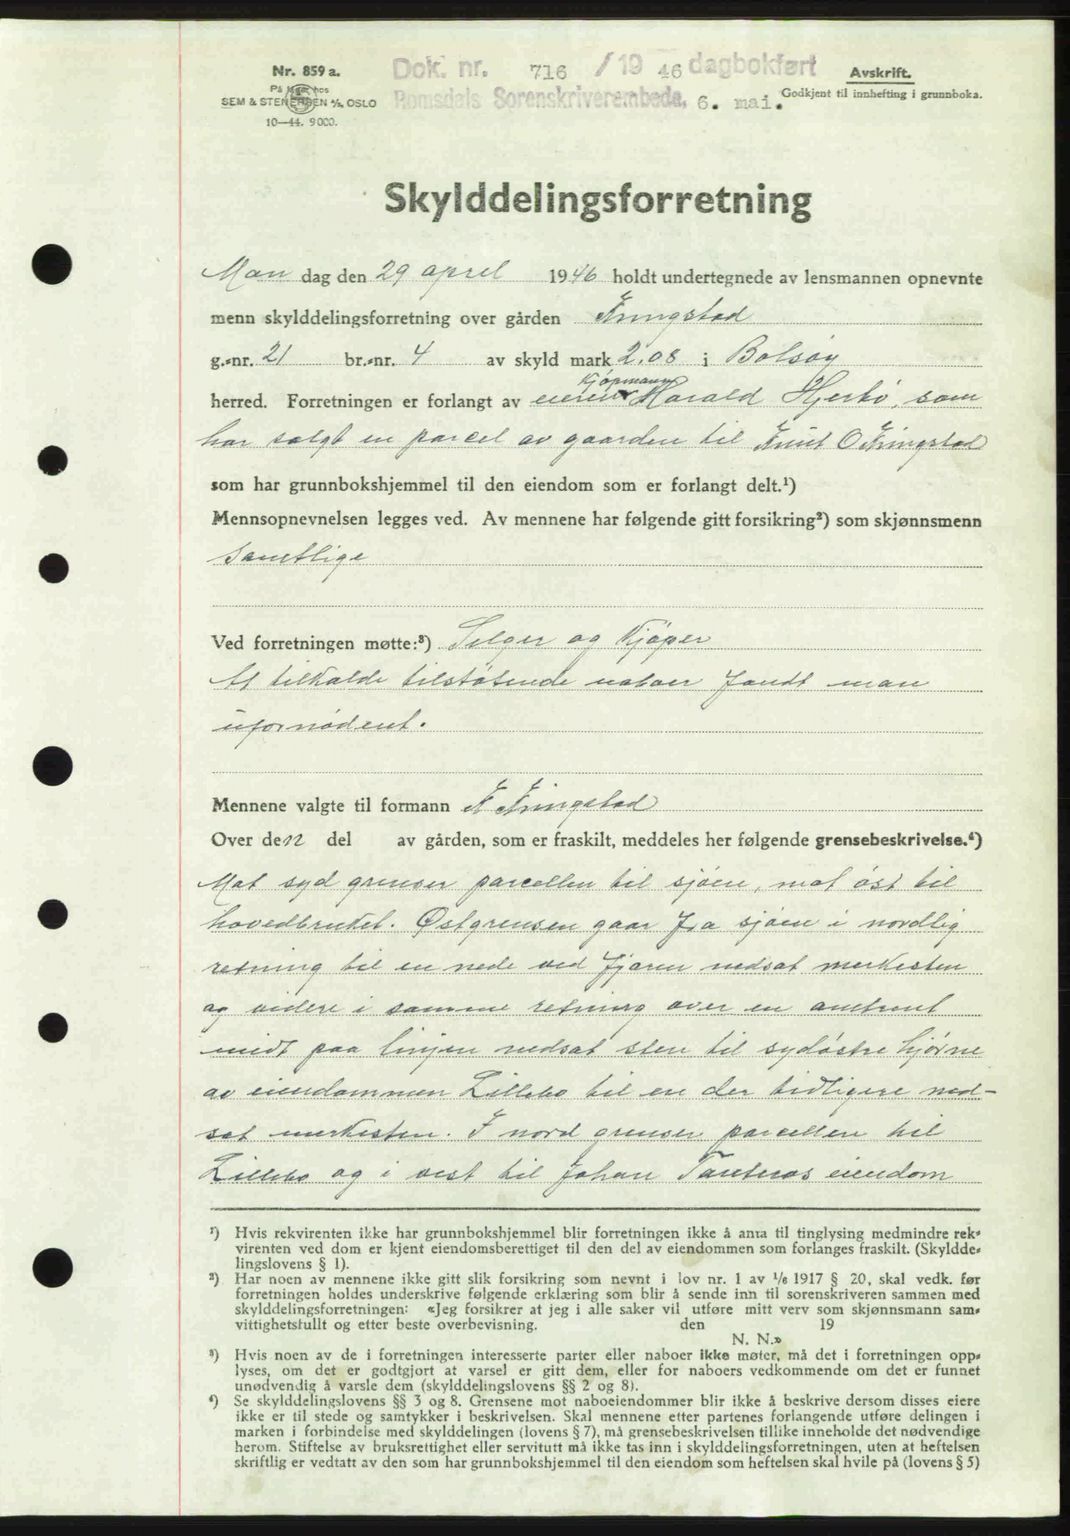 Nr. 859 a.
På lager hos
SEM & STENERSEN A/S, OSLO
10—44. 9000.
Dok. nr. 716 / 19 46 dagbokført
Romsdals Sorenskriverembede, 6. mai.
Avskrift.
Godkjent til innhefting i grunnboka.
Skylddelingsforretning
Man dag den 29 april 1946 holdt undertegnede av lensmannen opnevnte
menn skylddelingsforretning over gården Kringstad
g.-nr. 21 br.-nr. 4 av skyld mark 2.08 i Bolsøy
kjøpmann
herred. Forretningen er forlangt av eieren Harald Hjerbø, som
har solgt en parcel av gaarden til Knut O Kringstad
som har grunnbokshjemmel til den eiendom som er forlangt delt.¹)
Mennsopnevnelsen legges ved. Av mennene har følgende gitt forsikring²) som skjønnsmenn
samtlige
Ved forretningen møtte:³) Selger og Kjöper
At tilkalde tilstøtende naboer fandt man
ufornødent.
Mennene valgte til formann K Kringstad
Over den del av gården, som er fraskilt, meddeles her følgende grensebeskrivelse.⁴)
Mot syd grenser parcellen til sjöen, mot öst til
hovedbruket. Östgrensen gaar fra sjöen i nordlig
retning til en nede ved fjæren nedsat merkesten
og videre i samme retning over en omtrent
midt paa linjen nedsat sten til sydöstre hjörne
av eiendommen Lillebo til en der tidligere ned-
sat merkesten. I nord grenser parcellen til
Lillebo og i vest til Johan eiendom
¹) Hvis rekvirenten ikke har grunnbokshjemmel blir forretningen ikke å anta til tinglysing medmindre rek-
virenten ved dom er kjent eiendomsberettiget til den del av eiendommen som forlanges fraskilt. (Skyldde-
lingslovens § 1).
²) Har noen av mennene ikke gitt slik forsikring som nevnt i lov nr. 1 av ¹/₆ 1917 § 20, skal vedk. før
forretningen holdes underskrive følgende erklæring som blir å sende inn til sorenskriveren sammen med
skylddelingsforretningen: «Jeg forsikrer at jeg i alle saker vil utføre mitt verv som skjønnsmann sam-
vittighetsfullt og etter beste overbevisning. den 19
N. N.»
³) Hvis noen av de i forretningen interesserte parter eller naboer ikke møter, må det i forretningen opp-
lyses, om det er godtgjort at varsel er gitt dem, eller for naboers vedkommende om det er funnet
unødvendig å varsle dem (skylddelingslovens §§ 2 og 8).
⁴) Se skylddelingslovens §§ 3 og 8. Grensene mot naboeiendommer blir ikke å beskrive dersom disses eiere
ikke er til stede og samtykker i beskrivelsen. Skal mennene etter partenes forlangende utføre delingen i
marken i forbindelse med skylddelingen (lovens § 7), må grensebeskrivelsen tillike inneholde det nødvendige
herom. Stiftelse av bruksrettighet eller servitutt må ikke tas inn i skylddelingsforretningen, uten at heftelsen
skriftlig er vedtatt av den som har grunnbokshjemmel til den eiendom som heftelsen skal hvile på (lovens § 5)